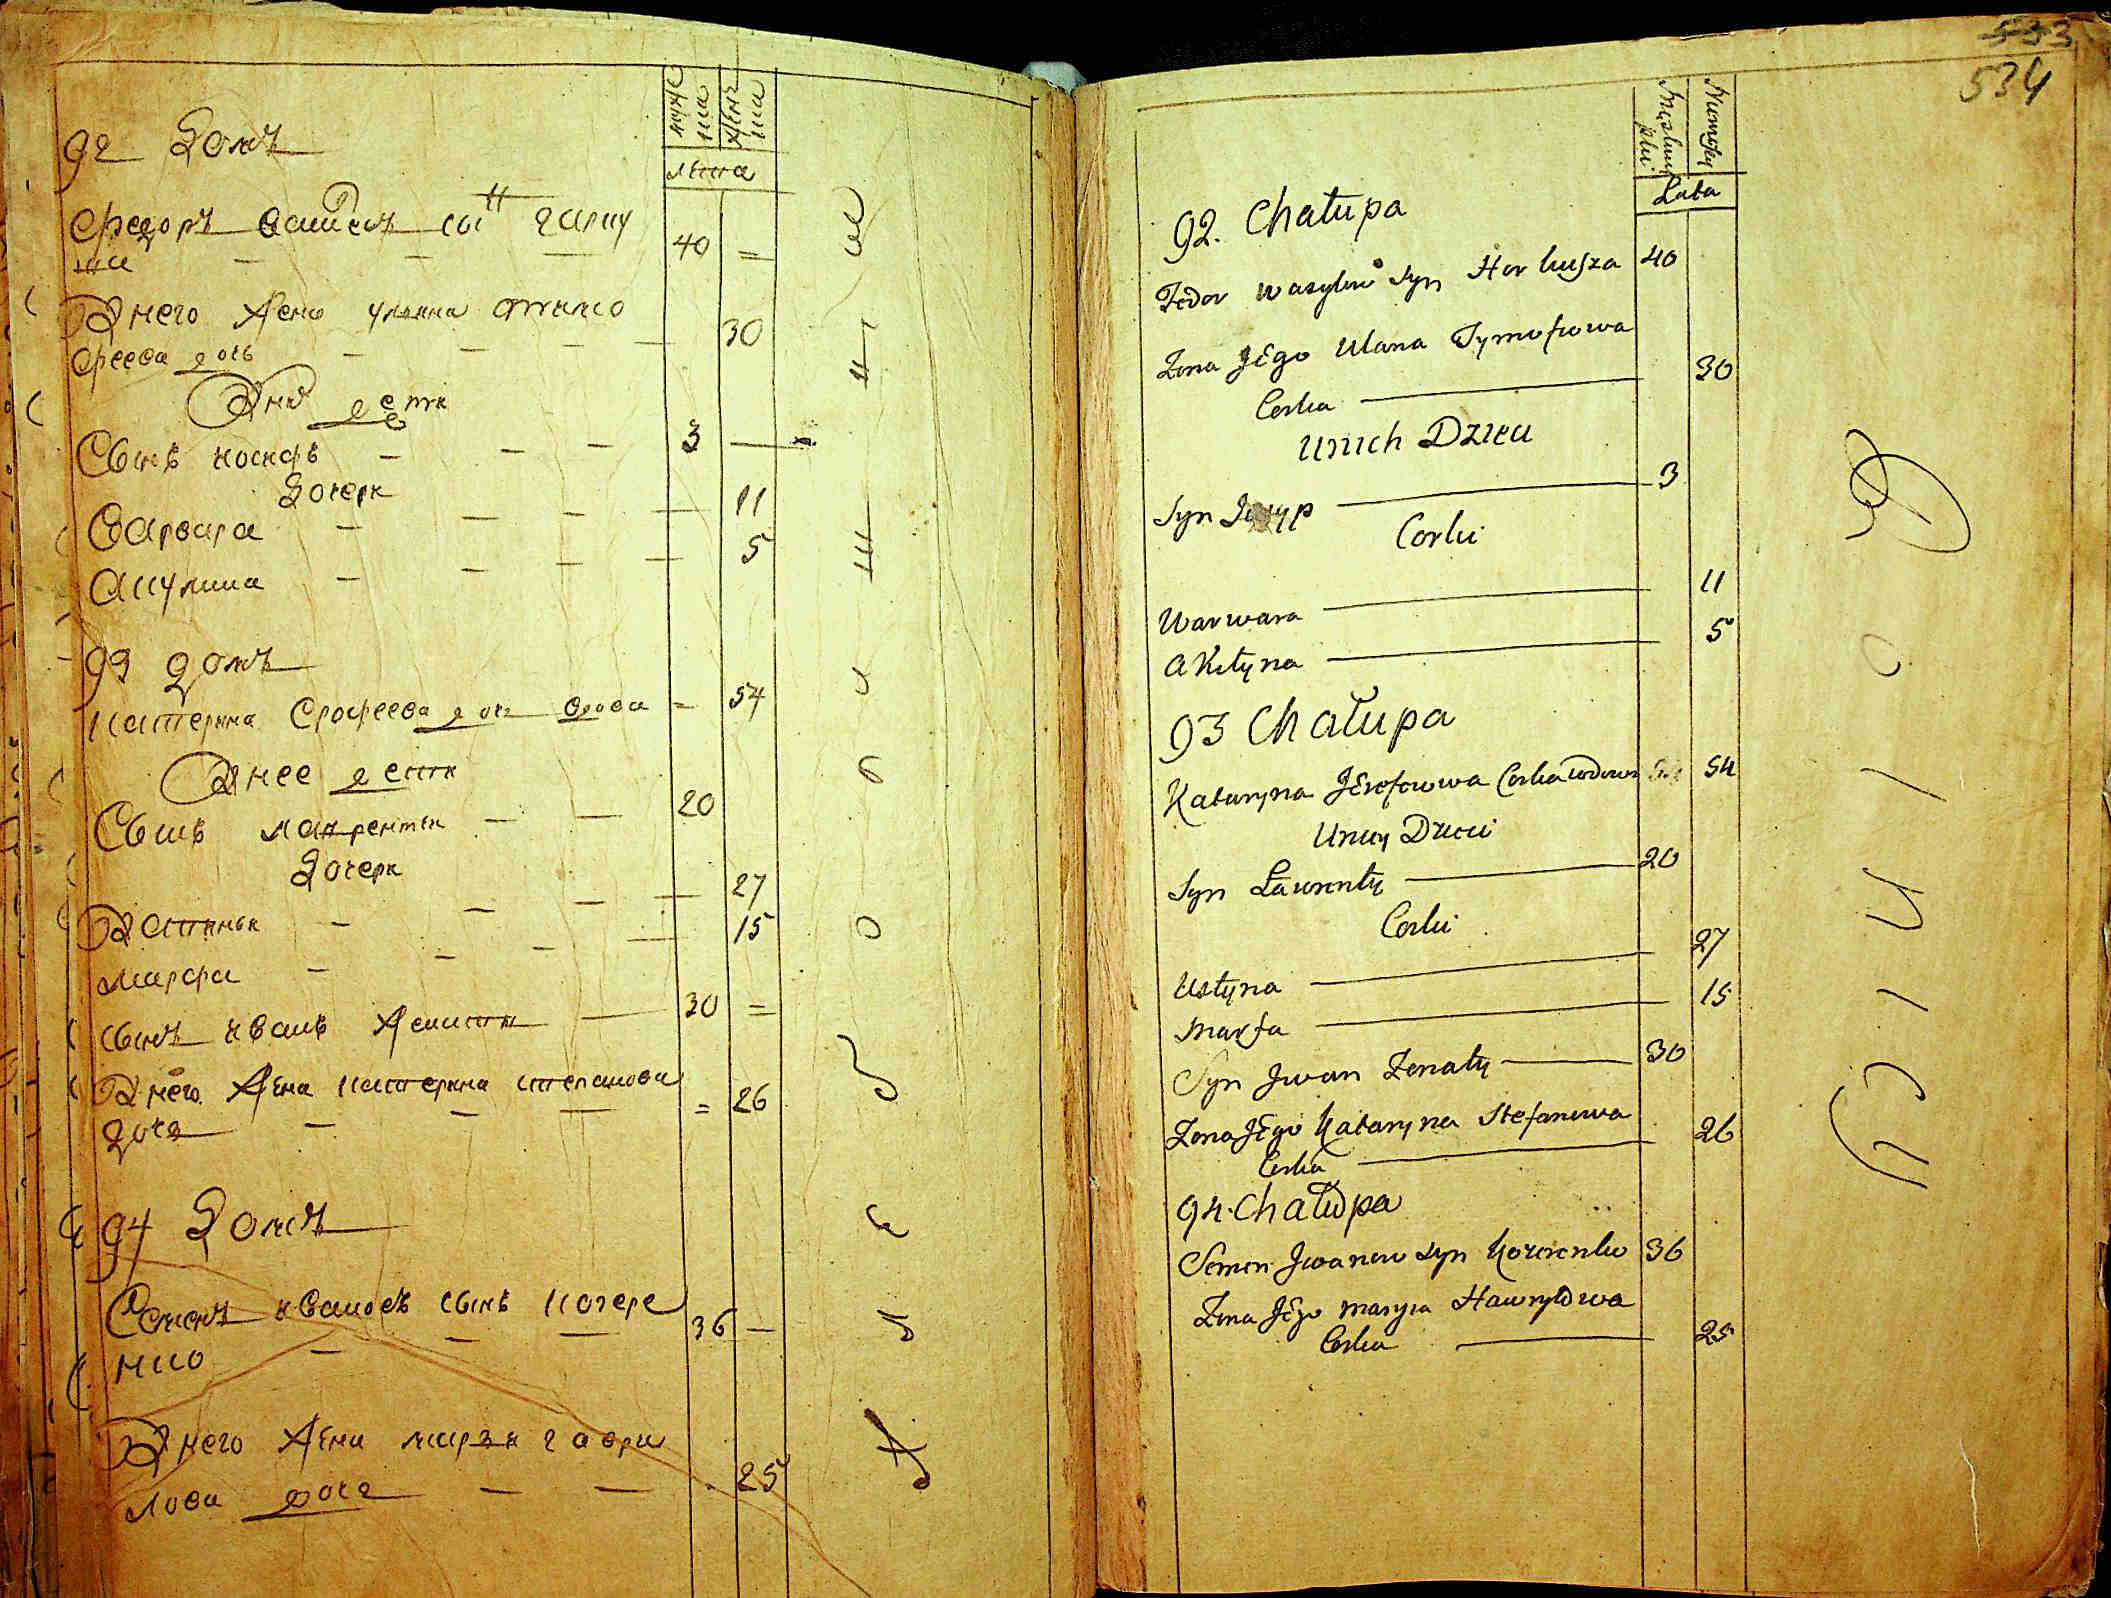 92 Домъ
муже
ска
женс
ка
Лѣта
Федоръ васил̾евъ сынъ гарку
ша 40 =
Внего жена улияна тимо
феева дочь 30
Вних дети
Сынъ иосифъ 3
Дочери
Варвара 11
Акулина 5
93 домъ
катерина Ерофеева дочь вдова = 54
Внее дети
Сынъ лаврентии 20
Дочери
Устинья 27
марфа 15
сынъ иванъ женатъ 30 =
Внего жена катерина степанова
дочь = 26
94 Домъ
Семенъ ивановъ сынъ козере
нко 36
Внего жена маря гаври
лова дочь 25
533
534
Męskiey
płci
Niewiesky
Lata
92. Chałupa
Fedor Wasylew Syn Harkusza 40
Zona Jego Ulana Tymofiowa
Corka 30
Unich Dzieci
Syn Jozyp 3
Corki
Warwara 11
Akułyna 5
93 Chałupa
Kataryna Jerofeiowa Corka wdowa 54
Uniey Dzieci
Syn Ławrenty 20
Corki
Ustyna 27
Marfa 15
Syn Jwan Zonaty 30
Zona Jego Kataryna Stefanowa
Corka 26
94. Chałupa
Semen Jwanow Syn Kozerenko 36
Zona Jego Marya Hawryłowa
Corka 25